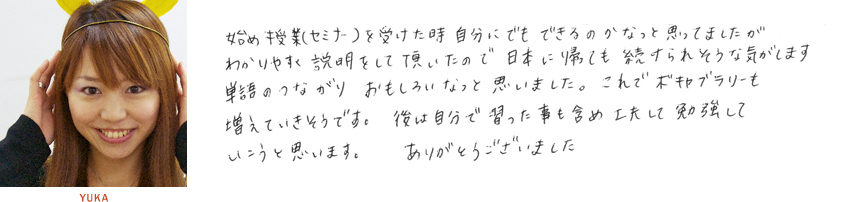 始め授業(セミナー)を受けた時自分にでもできるのかなっと思ってましたが
わかりやすく説明をして頂いたので日本に帰ても続けられそうな気がします
単語のつながりおもしろいなっと思いました。これでボキャブラリーも
増えていきそうです。後は自分で習った事も含め工夫して勉強して
いこうと思います。ありがとうございました
YUKA